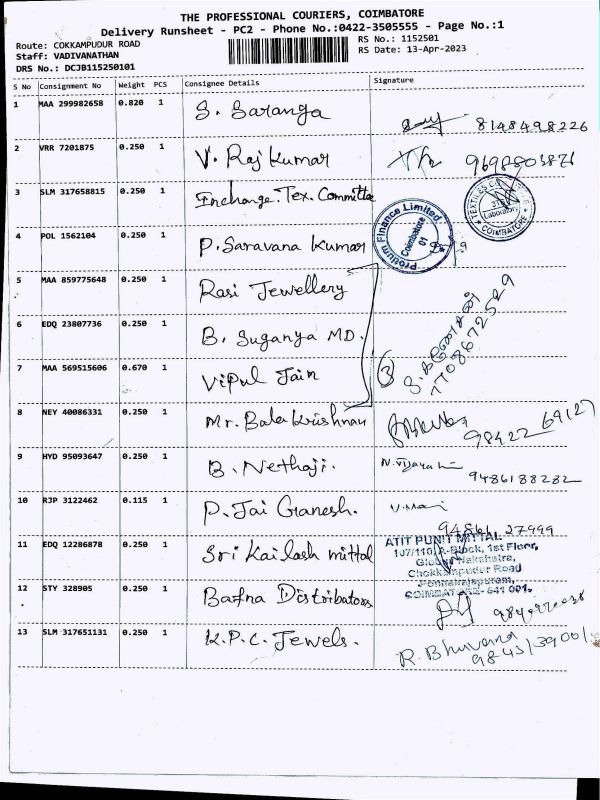 THE PROFESSIONAL COURIERS, COIMBATORE
Delivery Runsheet - PC2 - Phone No.:0422-3505555 - Page No.:1
Route: COKKAMPUDUR ROAD
RS No.: 1152501
Staff: VADIVANATHAN
RS Date: 13-Apr-2023
DRS No.: DCJB115250101
S No Consignment No Weight PCS Consignee Details Signature
1 MAA 299982658 0.820 1 S. Saranga 8148498226
2 VRR 7201875 0.250 1 V. Rajkumar
3 SLM 317658815 0.250 1 Incharge. Tex. Committe
TEXTILES Laboratory COIMBATORE
4 POL 1562104 0.250 1 P. Saravana Kumar
Finance Limited Coimbatore 01
5 MAA 859775648 0.250 1 Rasi Jewellery
6 EDQ 23807736 0.250 1 B. Suganya MD.
7 MAA 569515606 0.670 1 Vipul Jain
3
7708672529
8 NEY 40086331 0.250 1 Mr. Bala Krishnan 98422 69127
9 HYD 95093647 0.250 1 B. Nethaji. 9486188282
10 RJP 3122462 0.115 1 P. Jai Ganesh.
94861 27999
11 EDQ 12286878 0.250 1 Sri Kailash mittal
ATIT PUNIT MITTAL
107/110, A-Block, 1st Floor,
Nakshatra,
Chokkampudur Road
Ponnaiajapuram,
COIMBATORE- 641 001.
12 STY 328905 0.250 1 Bafna Distributors
13 SLM 317651131 0.250 1 K.P.C. Jewels. R. Bhuvana